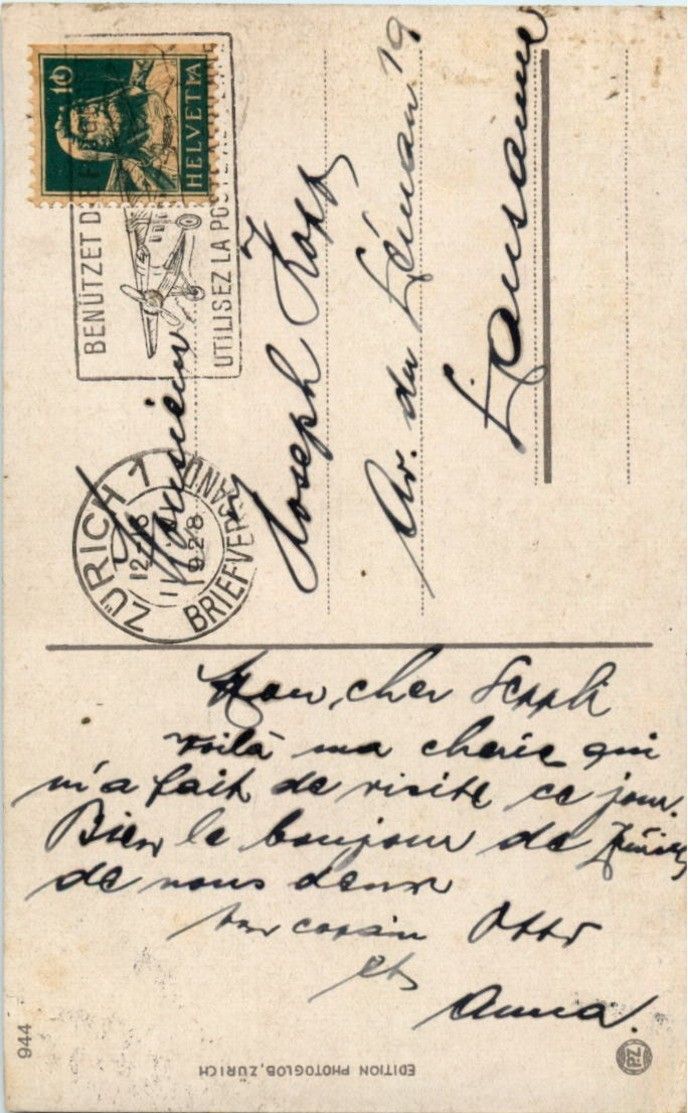 10
HELVETIA
BENÜTZET DIE
UTILISEZ LA POSTE
ZÜRICH 1
12
1928
BRIEFVERSAND
Monsieur
Joseph Kopp
Av. du Léman 19
Lausanne
Mon cher Seppli
voilà ma cherie qui
m'a fait de visite ce jour.
Bien le bonjour de Zürich
de nous deux
ton cousin Otto
et
Anna.
944
EDITION PHOTOGLOB, ZÜRICH